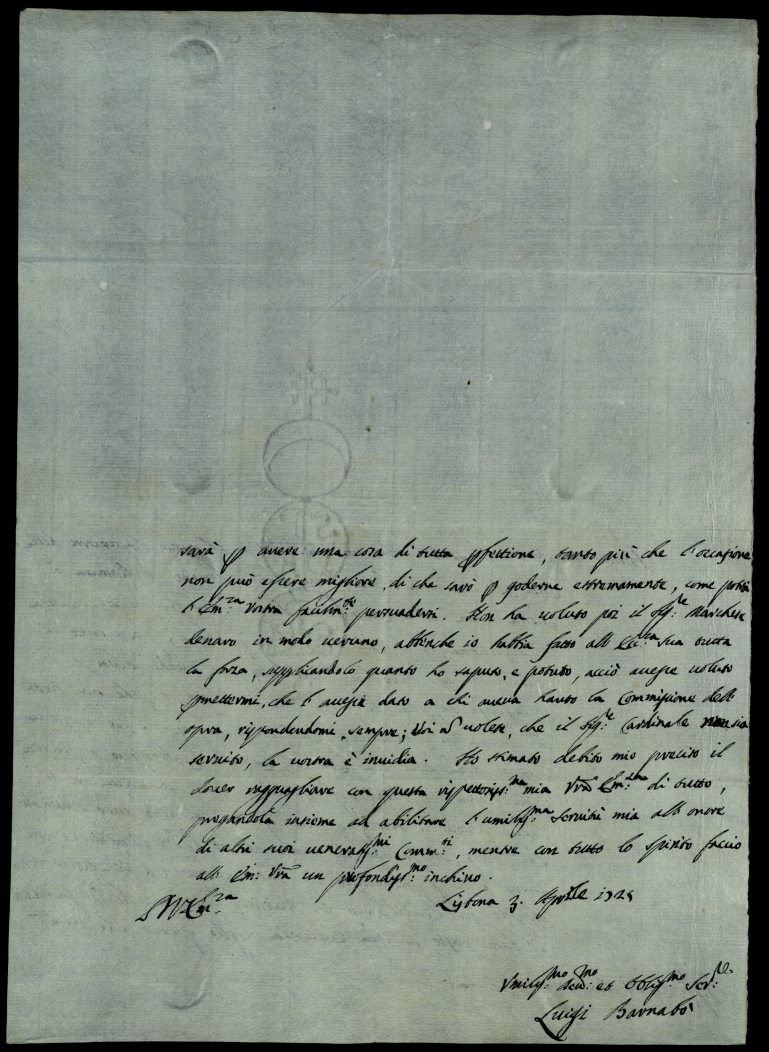 sarà p avere una cosa di tutta pfettione, tanto più che l'occasione
non può essere migliore, di che sarò p goderne estremamente, come potrà
l'Em:za Vostra facilm:te persuadersi. Non ha voluto poi il Sig:e Marchese
denaro in modo veruno, abbenche io habbia fatto all'Ecc:za sua tutta
la forza, supplicandolo quanto ho saputo, e potuto, acciò avesse voluto
pmettermi, che l'avesse dato a chi aveva hauto la Commissione dell'
opra, rispondendomi sempre; Voi nō volete, che il Sig:e Cardinale sia
servito, la vostra è invidia. Ho stimato debito mio preciso il
dover ragguagliare con questa rispettosiss:ma mia Vrā Em:za di tutto,
pregandola insieme ad abilitare l'umiliss:ma servitù mia all'onore
di altri suoi veneratiss:mi Comm:di, mentre con tutto lo spirito faccio
all'Em: Vrā un profondiss:mo inchino.
Lisbona 3. Aprile 1725
Umiliss:mo Dev:mo et Obblig:mo Ser:re
Luigi Barnabò